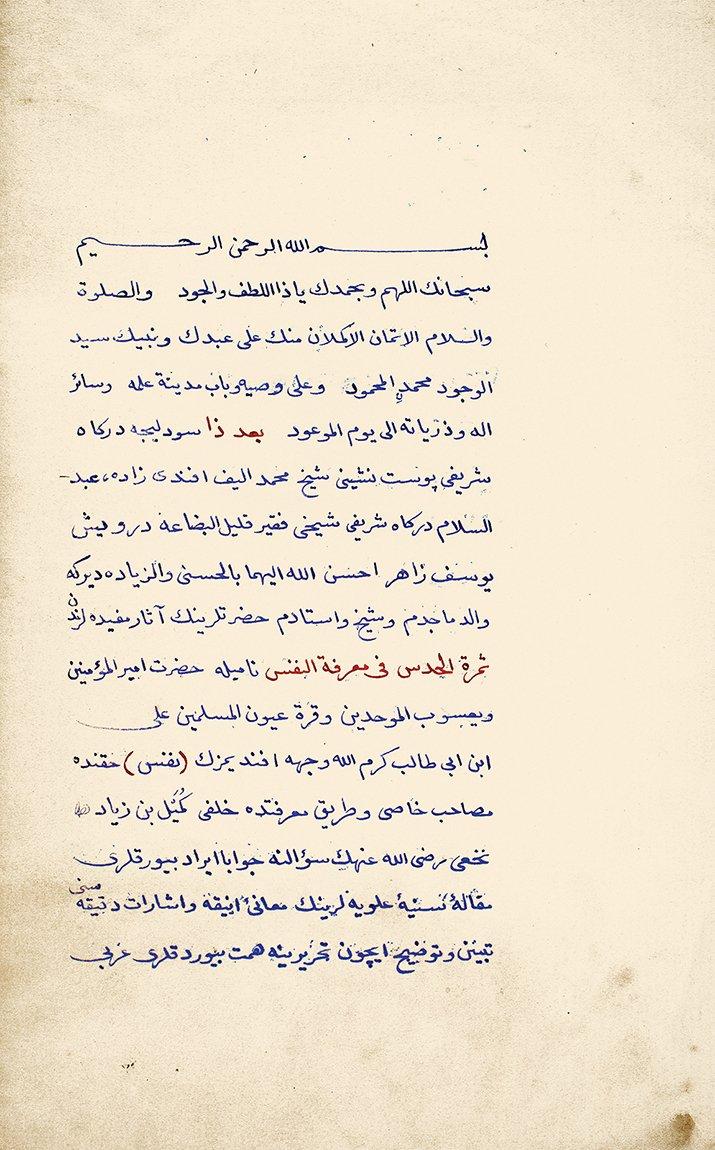 بسم الله الرحمن الرحيم
سبحانك اللهم وبحمدك ياذا اللطف والجود والصلوة
والسلام الاتمان الاكملان منك على عبدك ونبيك سيد
الوجود محمدٍ المحمود وعلى وصيه وباب مدينة علمه وسائر
اله وذرياته الى يوم الموعود بعد ذا سودليجه دركاه
شريفى پوست نشينى شيخ محمد اليف افندى زاده، عبد
السلام دركاه شريفى شيخى فقير قليل البضاعه درويش
يوسف زاهر احسن الله اليهما بالحسنى والزياده ديركه
والد ماجدم وشيخ واستادم حضرتلرينك آثار مفيده لرندن
ثمرة الحدس فى معرفة النفس ناميله حضرت امير المؤمنين
ويعسوب الموحدين وقرة عيون المسلمين على
ابن ابى طالب كرم الله وجهه افنديمزك (نفس) حقنده
مصاحب خاصى وطريق معرفتده خلفى كُمَيْل بن زياد
نخعى رضى الله عنهك سؤالنه جوابا ايراد بيورقلرى
مقالۀ سنيۀ علويه لرينك معانئ انيقه واشارات دقيقه سنى
تبيين وتوضيح ايچون تحريرينه همت بيوردقلرى عربى